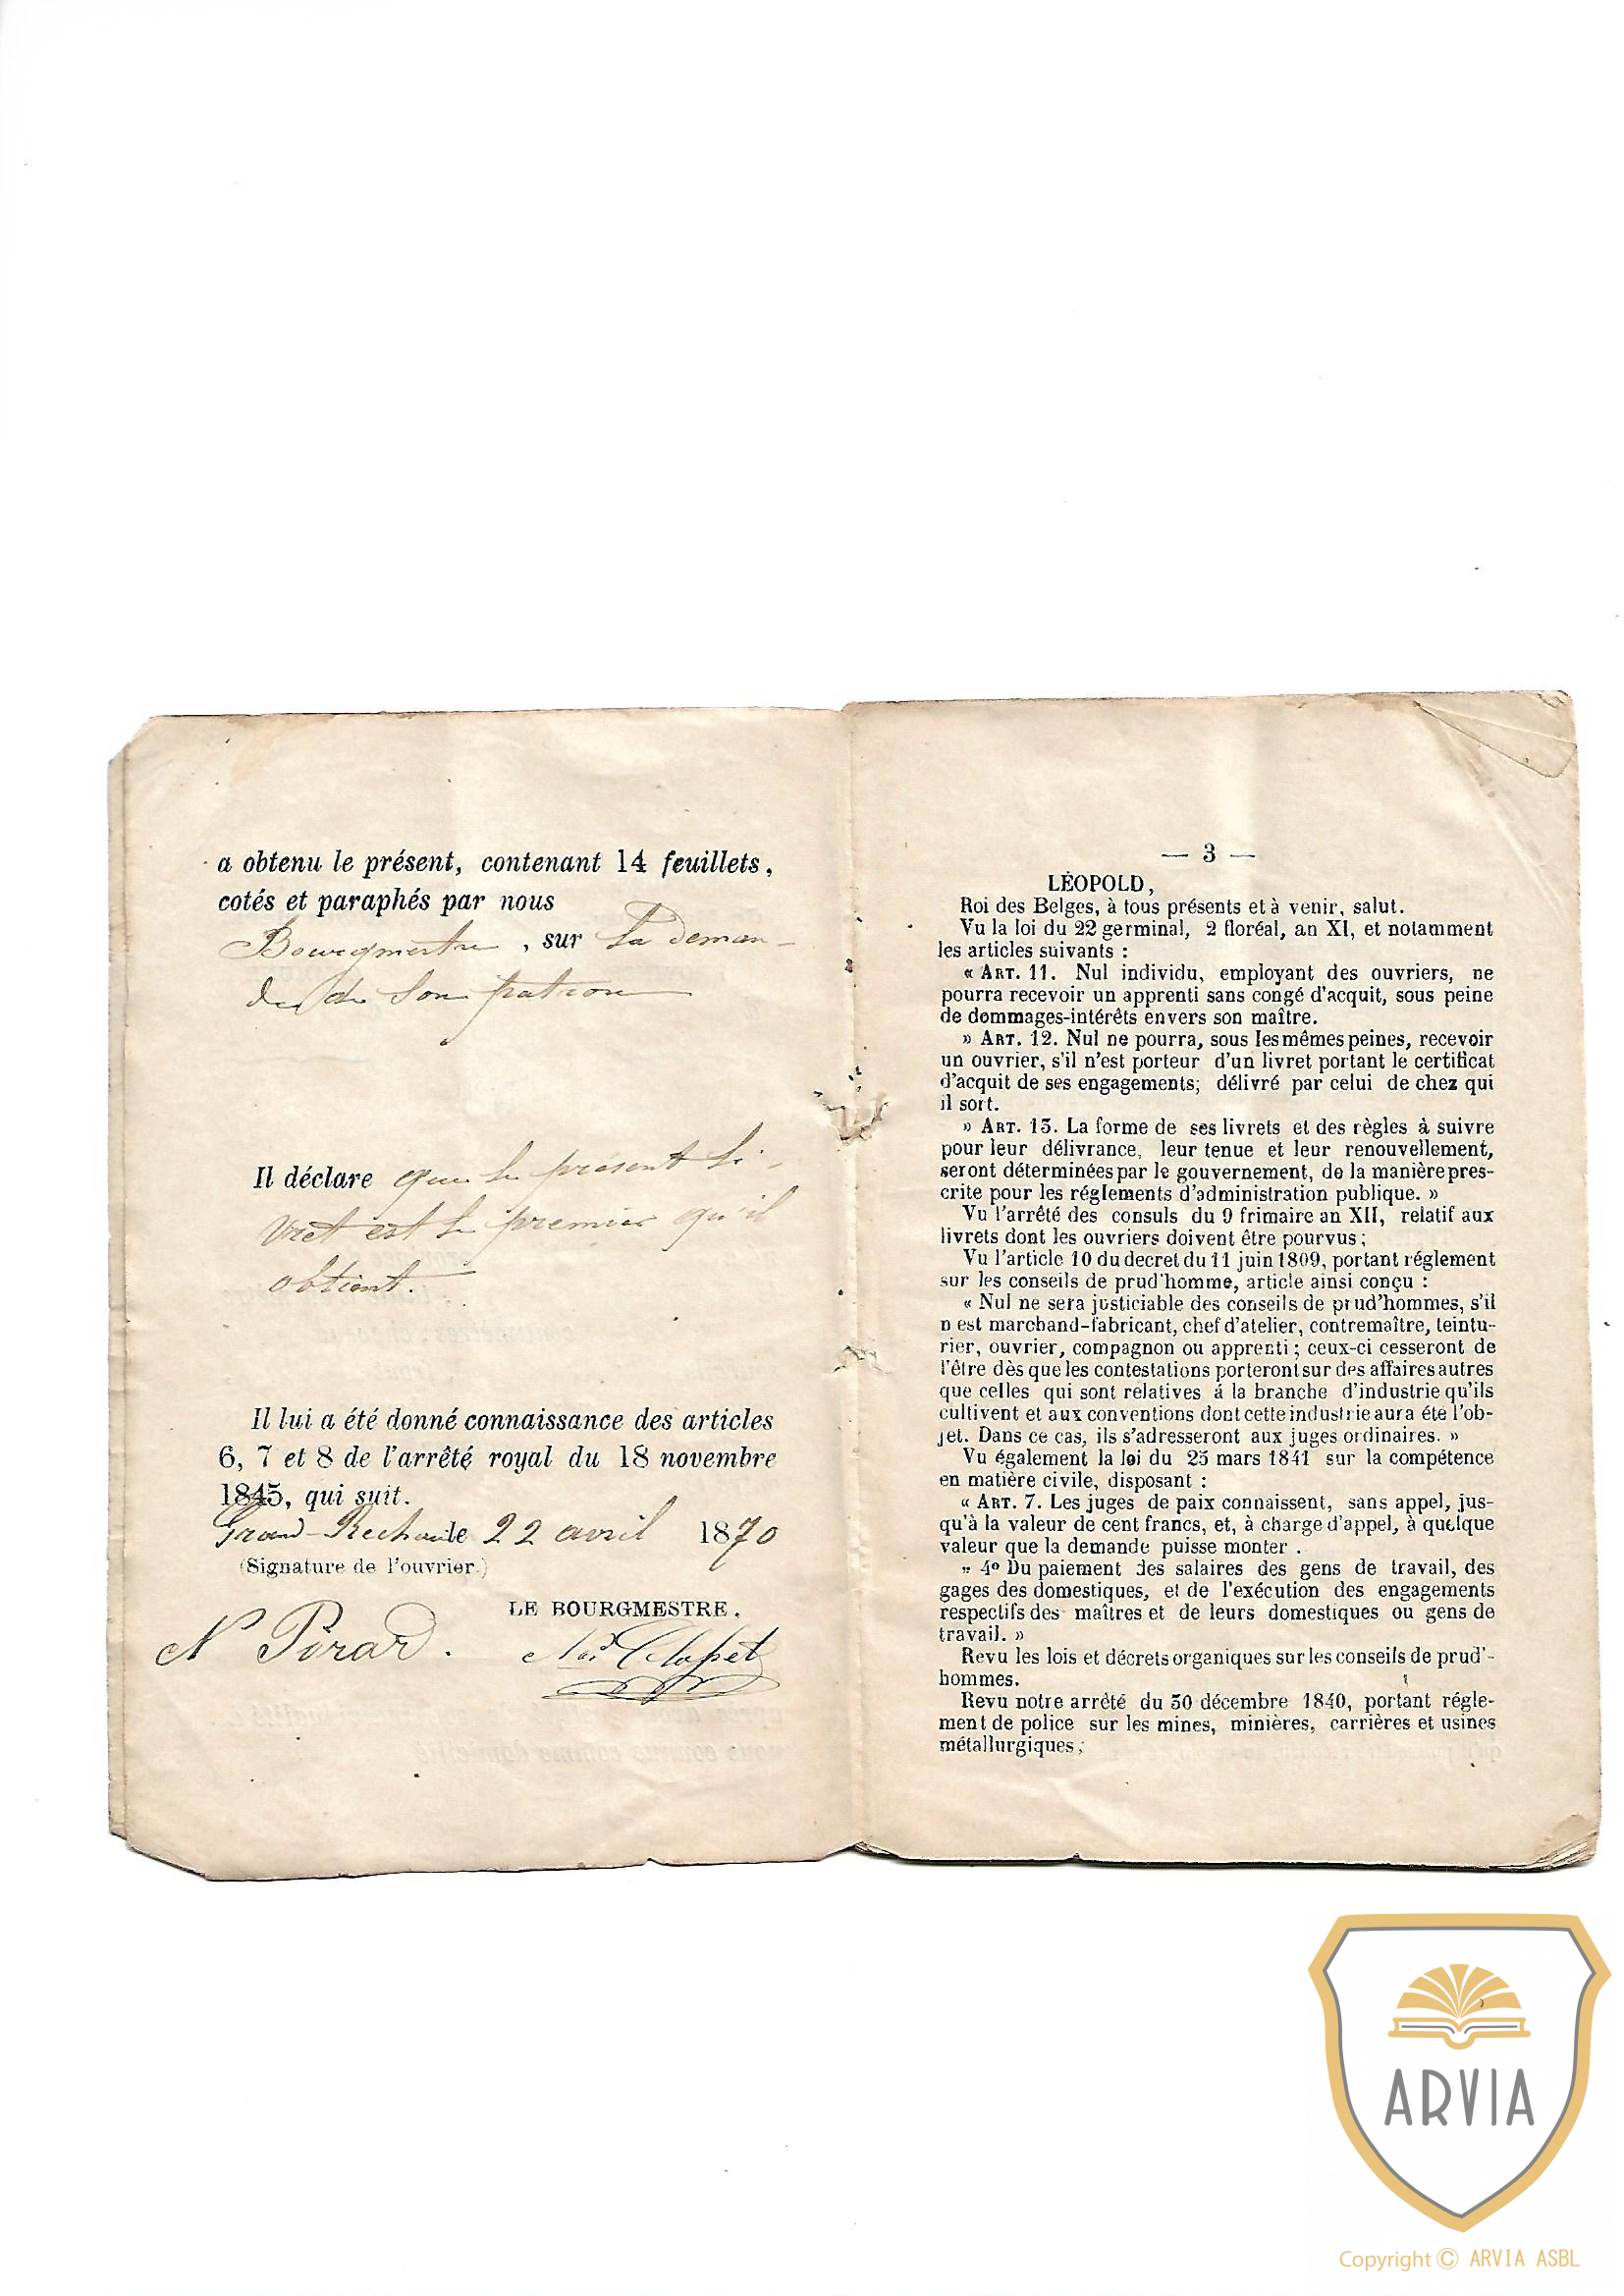 a obtenu le présent, contenant 14 feuillets,
cotés et paraphés par nous
Bourgmestre, sur la deman-
de de son patron
Il déclare que le présent li-
vret est le premier qu'il
obtient.
Il lui a été donné connaissance des articles
6, 7 et 8 de l'arrêté royal du 18 novembre
1845, qui suit.
Grand-Rechain le 22 avril 1870
(Signature de l'ouvrier.)
LE BOURGMESTRE,
N Pirard.
— 3 —
LÉOPOLD,
Roi des Belges, à tous présents et à venir, salut.
Vu la loi du 22 germinal, 2 floréal, an XI, et notamment
les articles suivants :
« ART. 11. Nul individu, employant des ouvriers, ne
pourra recevoir un apprenti sans congé d'acquit, sous peine
de dommages-intérêts envers son maître.
» ART. 12. Nul ne pourra, sous les mêmes peines, recevoir
un ouvrier, s'il n'est porteur d'un livret portant le certificat
d'acquit de ses engagements; délivré par celui de chez qui
il sort.
» ART. 13. La forme de ses livrets et des règles à suivre
pour leur délivrance, leur tenue et leur renouvellement,
seront déterminées par le gouvernement, de la manière pres-
crite pour les réglements d'administration publique. »
Vu l'arrêté des consuls du 9 frimaire an XII, relatif aux
livrets dont les ouvriers doivent être pourvus;
Vu l'article 10 du decret du 11 juin 1809, portant réglement
sur les conseils de prud'homme, article ainsi conçu :
« Nul ne sera justiciable des conseils de prud'hommes, s'il
n'est marchand-fabricant, chef d'atelier, contremaître, teintu-
rier, ouvrier, compagnon ou apprenti; ceux-ci cesseront de
l'être dès que les contestations porteront sur des affaires autres
que celles qui sont relatives à la branche d'industrie qu'ils
cultivent et aux conventions dont cette industrie aura éte l'ob-
jet. Dans ce cas, ils s'adresseront aux juges ordinaires. »
Vu également la loi du 25 mars 1841 sur la compétence
en matière civile, disposant :
« ART. 7. Les juges de paix connaissent, sans appel, jus-
qu'à la valeur de cent francs, et, à charge d'appel, à quelque
valeur que la demande puisse monter .
» 4º Du paiement des salaires des gens de travail, des
gages des domestiques, et de l'exécution des engagements
respectifs des maîtres et de leurs domestiques ou gens de
travail. »
Revu les lois et décrets organiques sur les conseils de prud'-
hommes.
Revu notre arrêté du 30 décembre 1840, portant régle-
ment de police sur les mines, minières, carrières et usines
métallurgiques;
ARVIA
Copyright © ARVIA ASBL